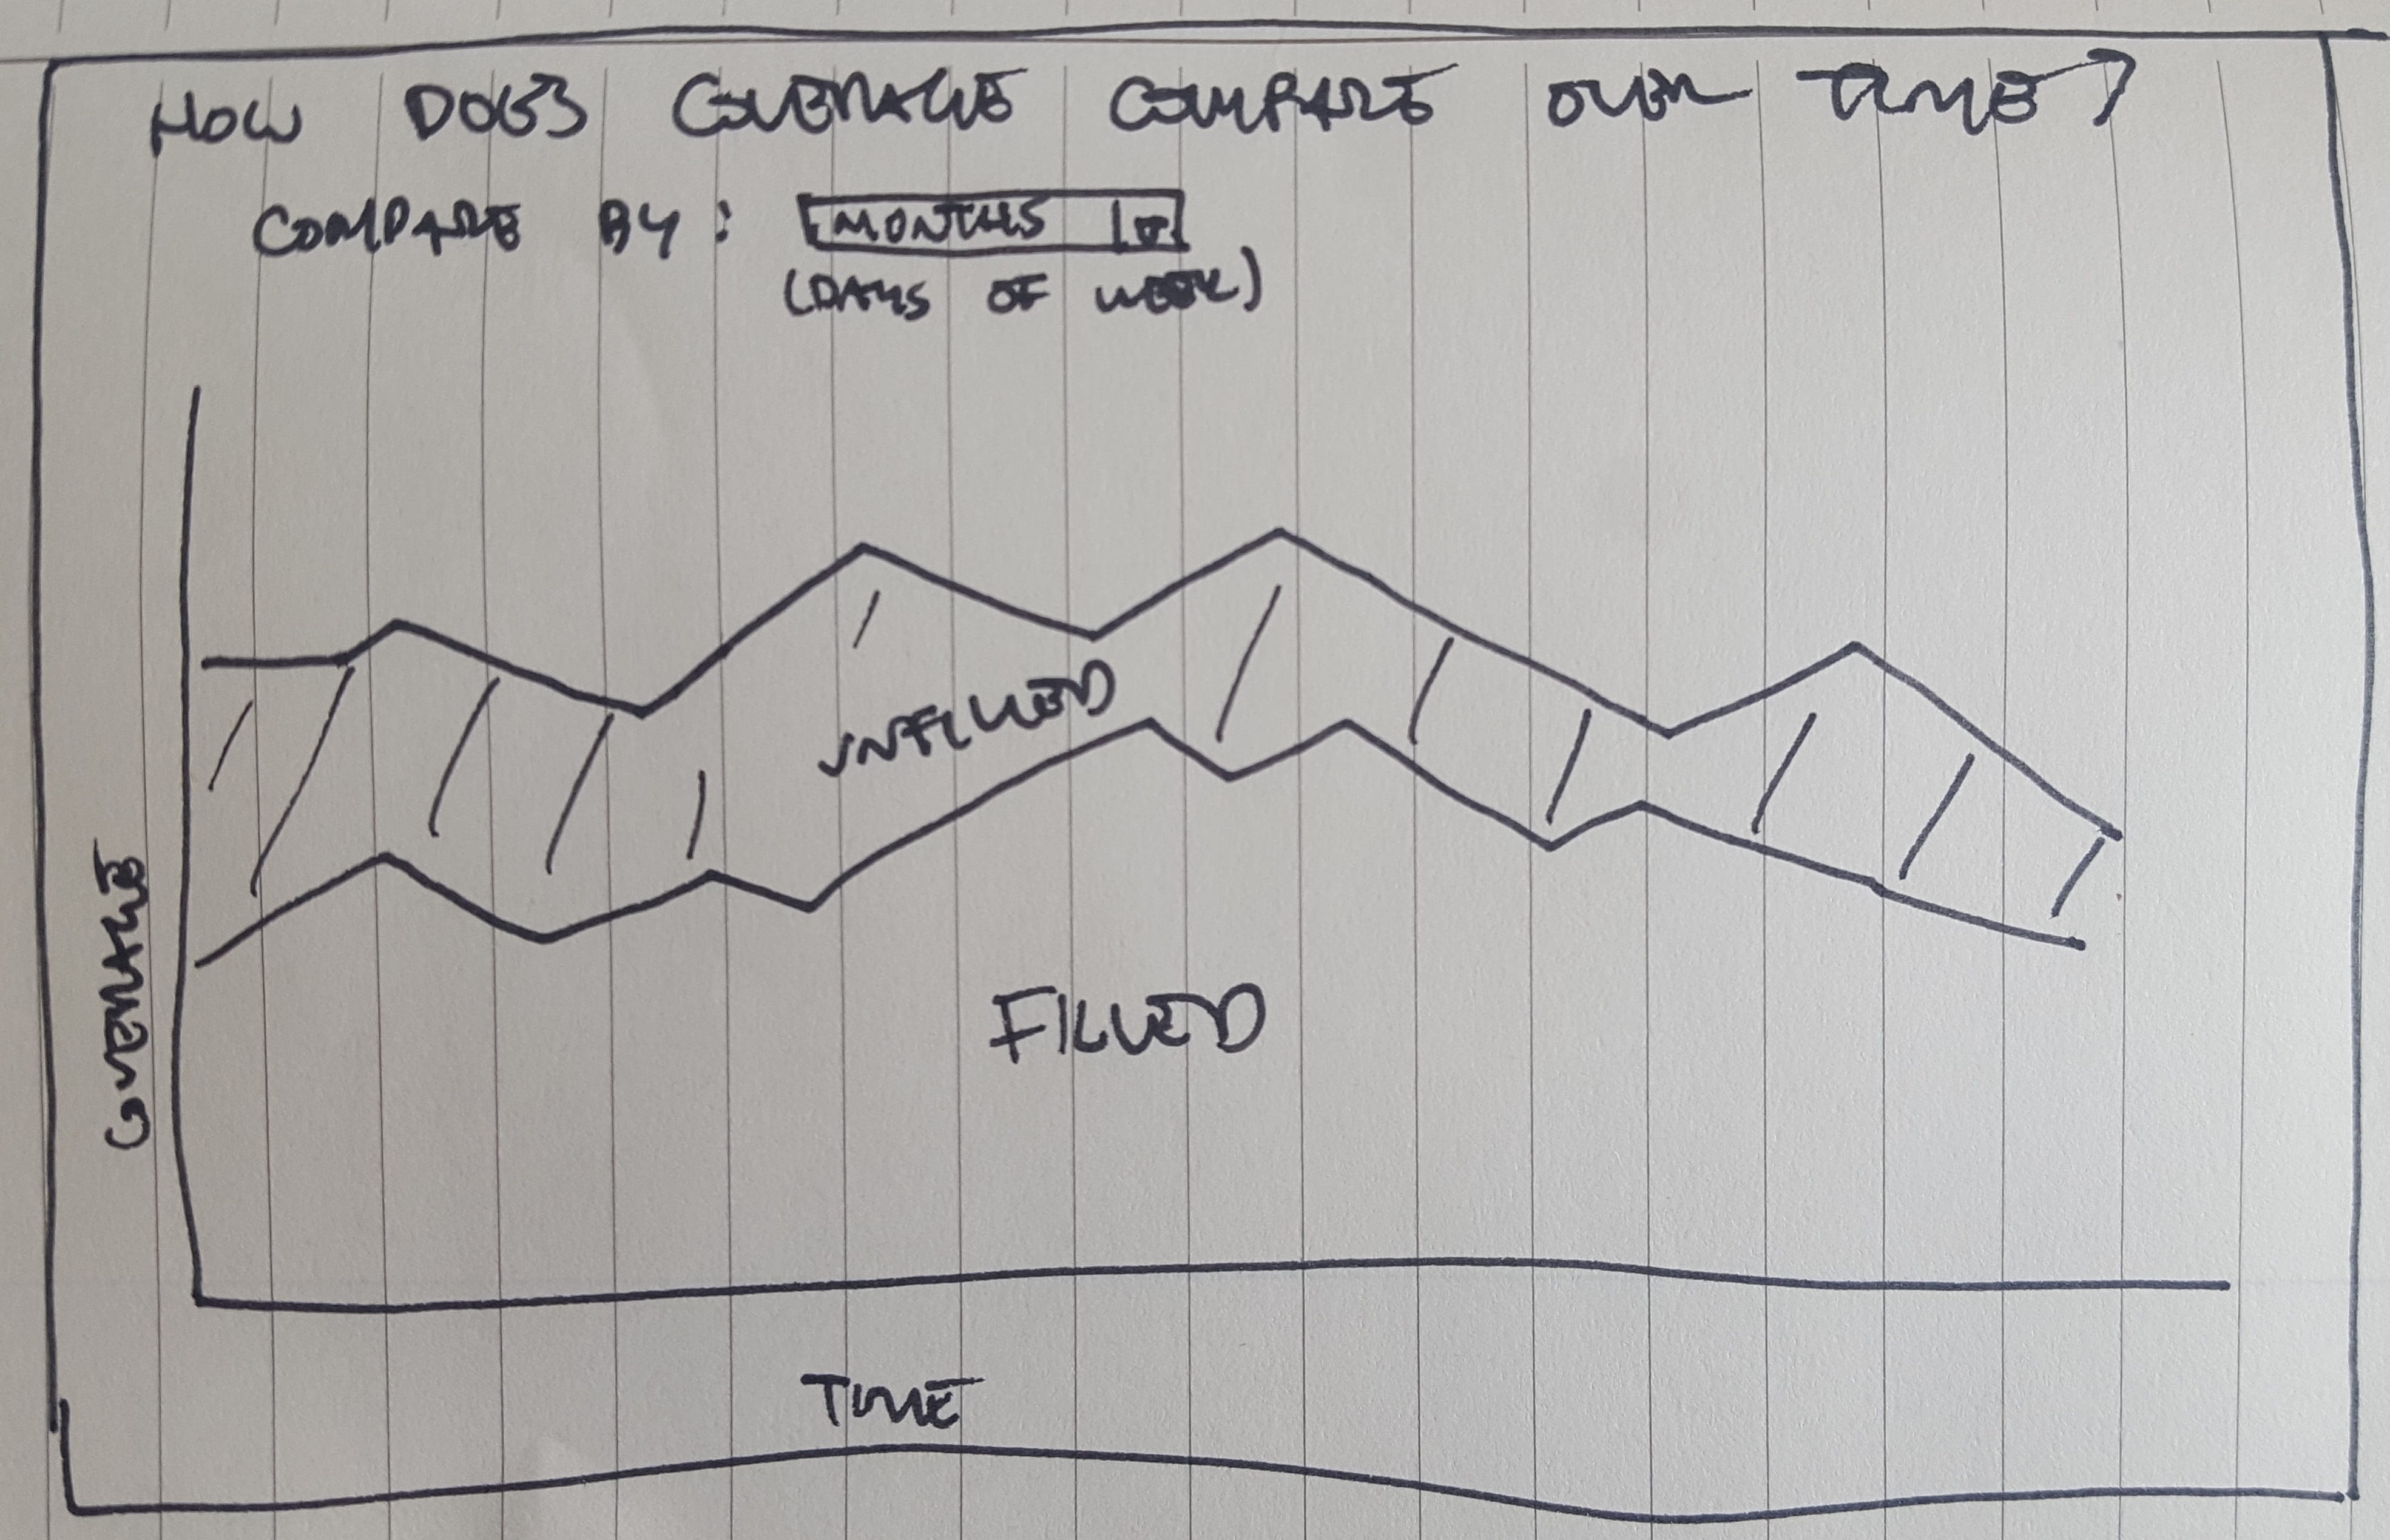 HOW DOES COVERAGE COMPARE OVER TIME?
COMPARE BY: MONTHS
(DAYS OF WEEK)
UNFILLED
COVERAGE
FILLED
TIME